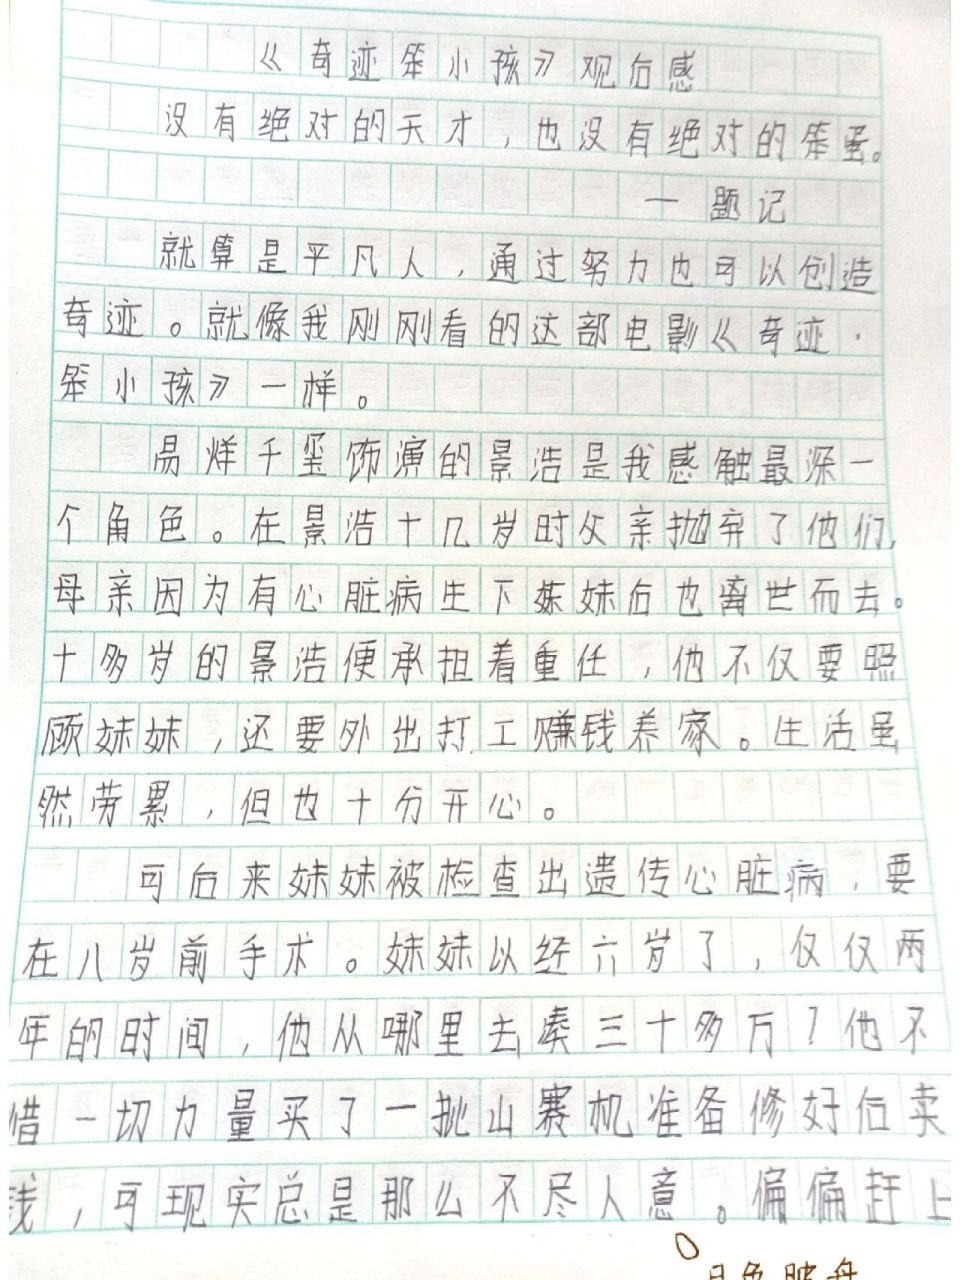 《奇迹笨小孩》观后感
没有绝对的天才，也没有绝对的笨蛋。
一题记
就算是平凡人，通过努力也可以创造
奇迹。就像我刚刚看的这部电影《奇迹·
笨小孩》一样。
易烊千玺饰演的景浩是我感触最深一
个角色。在景浩十几岁时父亲抛弃了他们，
母亲因为有心脏病生下妹妹后也离世而去。
十多岁的景浩便承担着重任，他不仅要照
顾妹妹，还要外出打工赚钱养家。生活虽
然劳累，但也十分开心。
可后来妹妹被检查出遗传心脏病，要
在八岁前手术。妹妹以经六岁了，仅仅两
年的时间，他从哪里去凑三十多万？他不
惜一切力量买了一批山赛机准备修好后卖
钱，可现实总是那么不尽人意。偏偏赶上